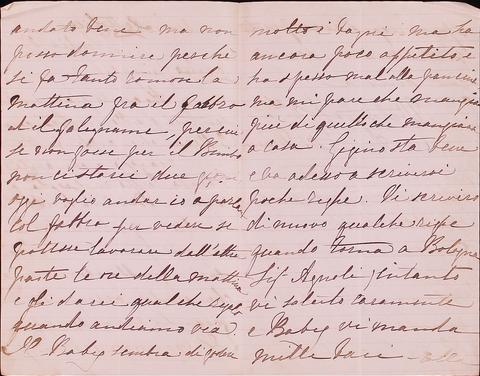 andato bene ma non
posso dormire perchè
si fa tanto romore la
mattina fra il fabbro
ed il falegname, per cui
se non fosse per il Bimbo
non ci starei due
oggi voglio andar io a
col fabbro per vedere se
potesse lavorare dall'altra
parte le ore della mattina
e gli darei qualche
quando andiamo via.
Il Baby sembra di godere
molto i bagni ma ha
ancora poco appetito, e
ha spesso mal alla pancina
ma mi pare che mangia
più di quello che mangiava
a casa. Gigino sta bene
e va adesso a scrivervi
poche righe. Vi scriverò
di nuovo qualche righe
quando torna a Bologna
Sig Agnoli, intanto
vi saluto caramente
e Baby vi manda
mille baci